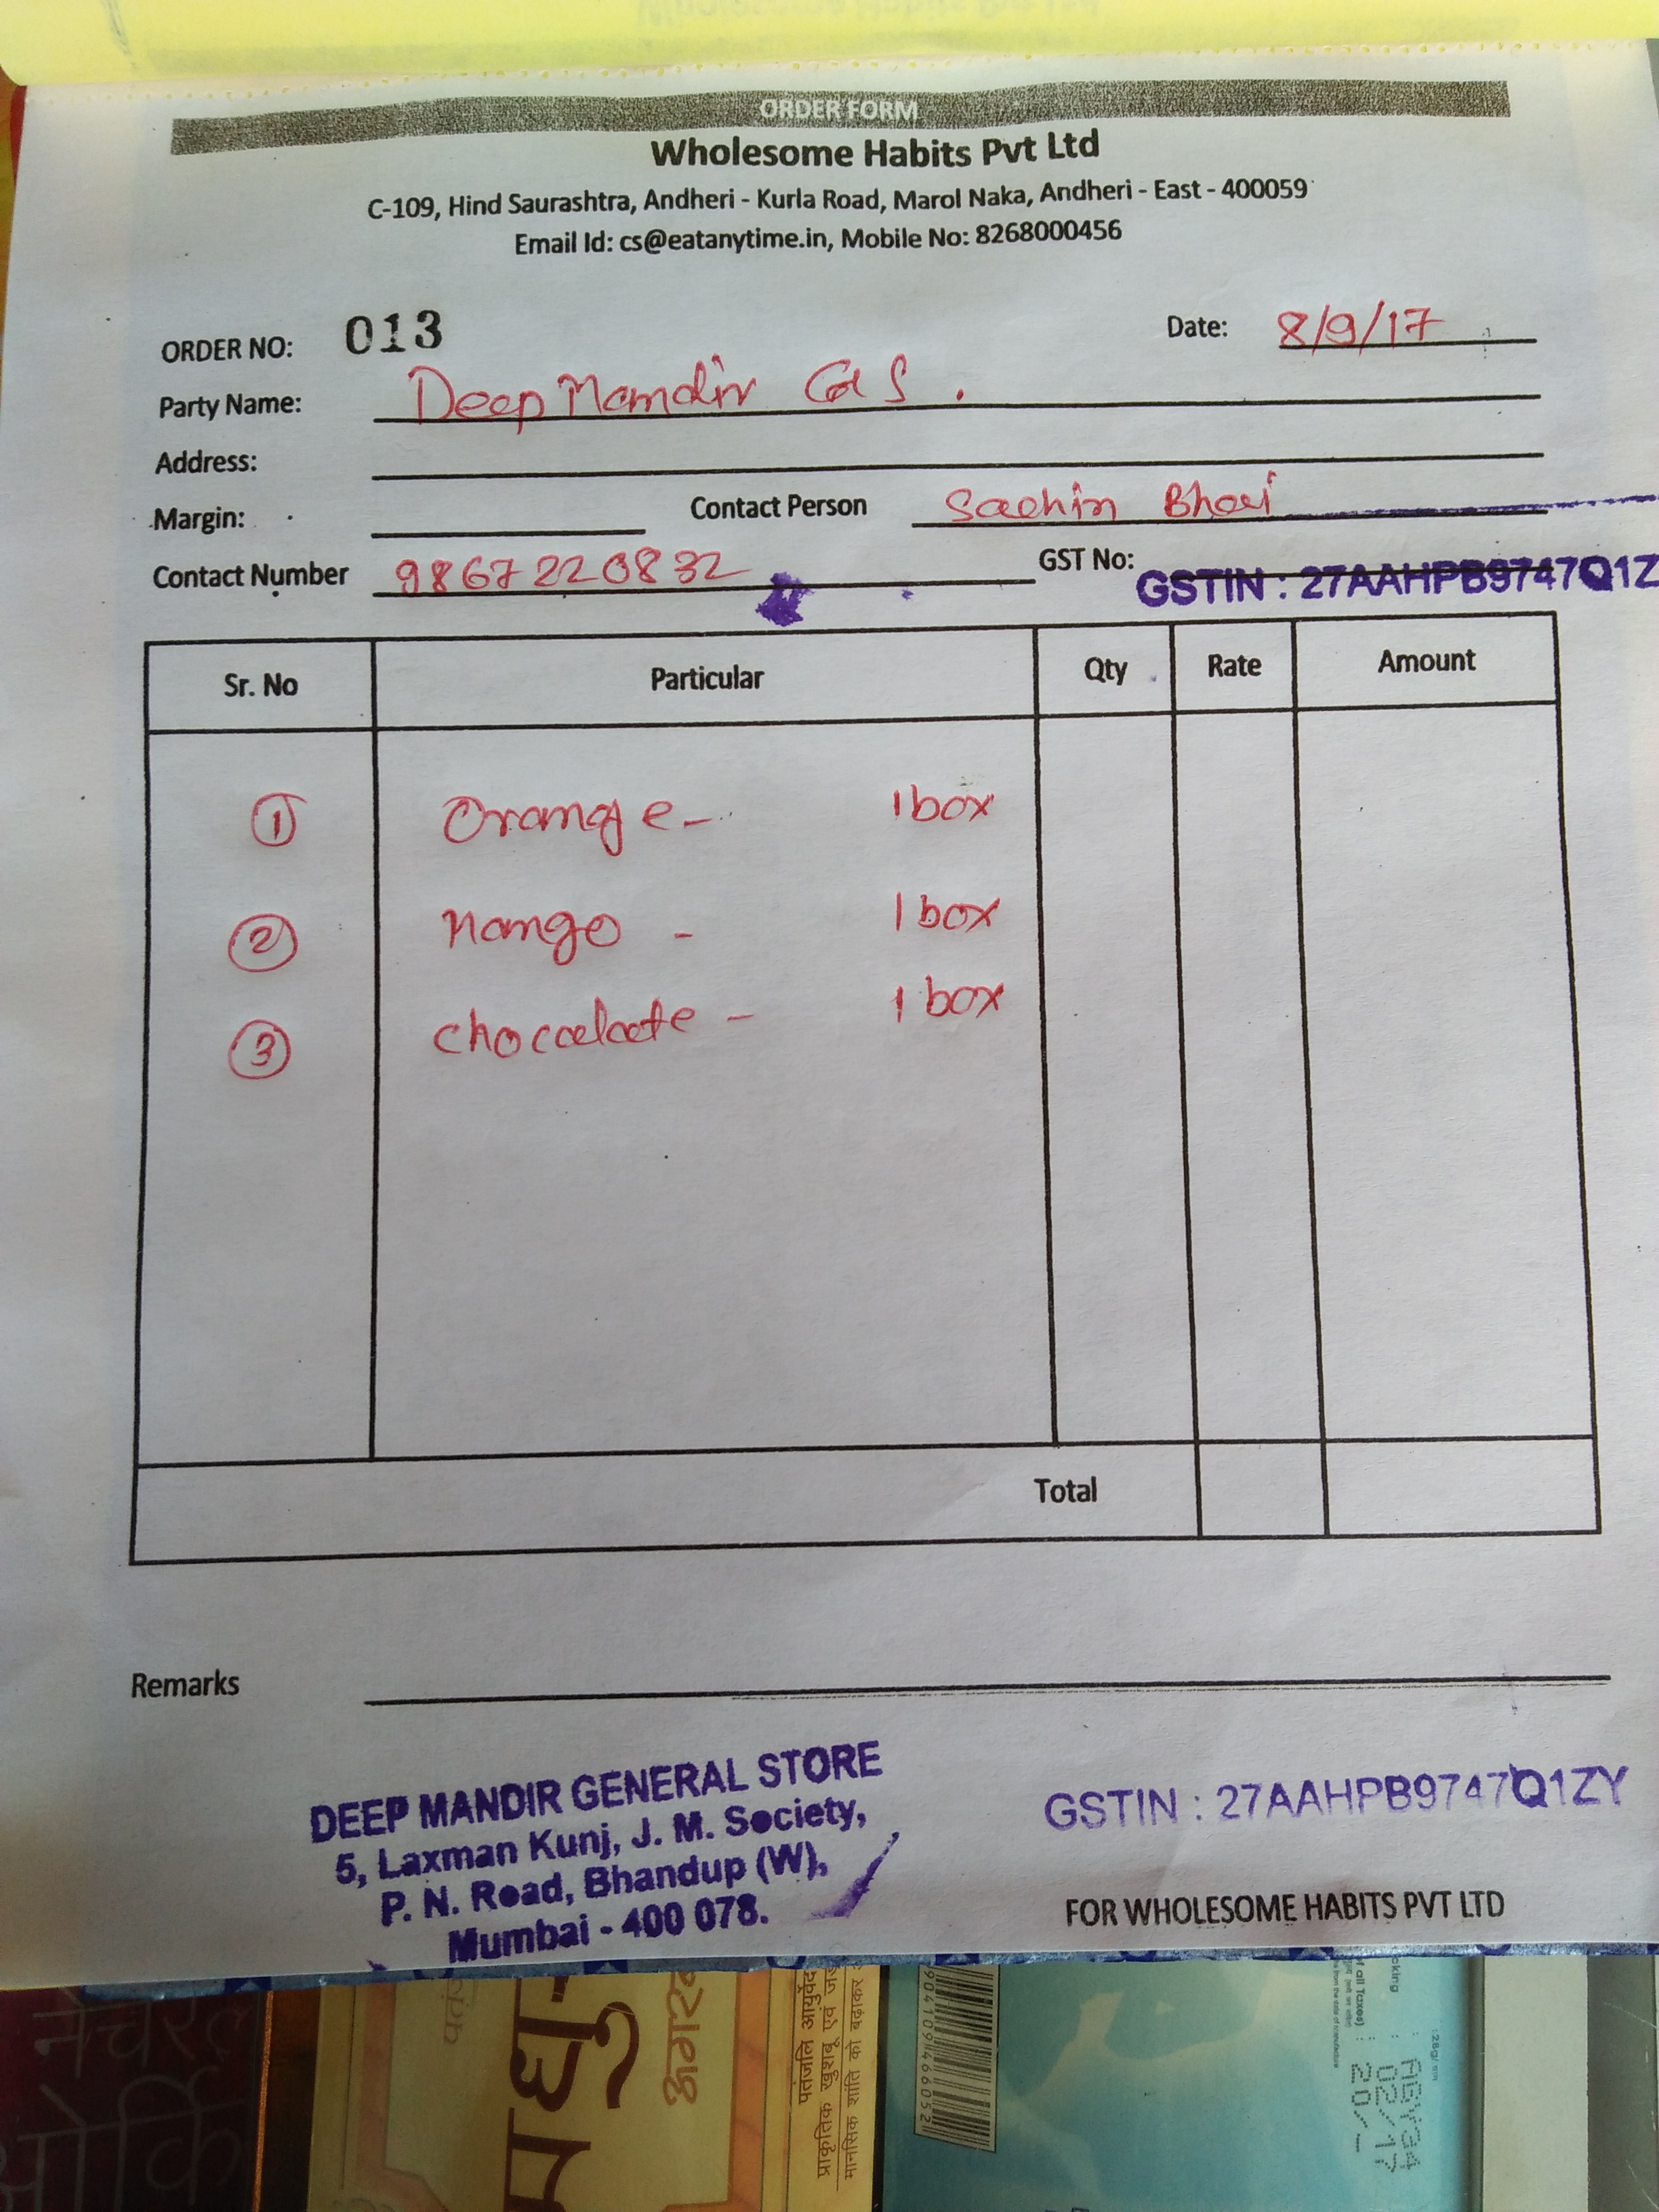 ORDER FORM
Wholesome Habits Pvt Ltd
C-109, Hind Saurashtra, Andheri - Kurla Road, Marol Naka, Andheri - East - 400059
Email Id: cs@eatanytime.in, Mobile No: 8268000456
ORDER NO: 013 Date: 8/9/17
Party Name: Deep Mandir G S .
Address:
Margin: Contact Person Sachin Bhai
Contact Number 9867220832 GST No: GSTIN : 27AAHPB9747Q1Z
Sr. No Particular Qty Rate Amount
1 Orange - 1 box
2 Mango - 1 box
3 chocolate - 1 box
Total
Remarks
DEEP MANDIR GENERAL STORE
5, Laxman Kunj, J. M. Society,
P. N. Road, Bhandup (W),
Mumbai - 400 078.
GSTIN : 27AAHPB9747Q1ZY
FOR WHOLESOME HABITS PVT LTD
पतंजलि आयुर्वेद
प्राकृतिक खुशबू एवं
मानसिक शांति को बढ़ाकर
02/17